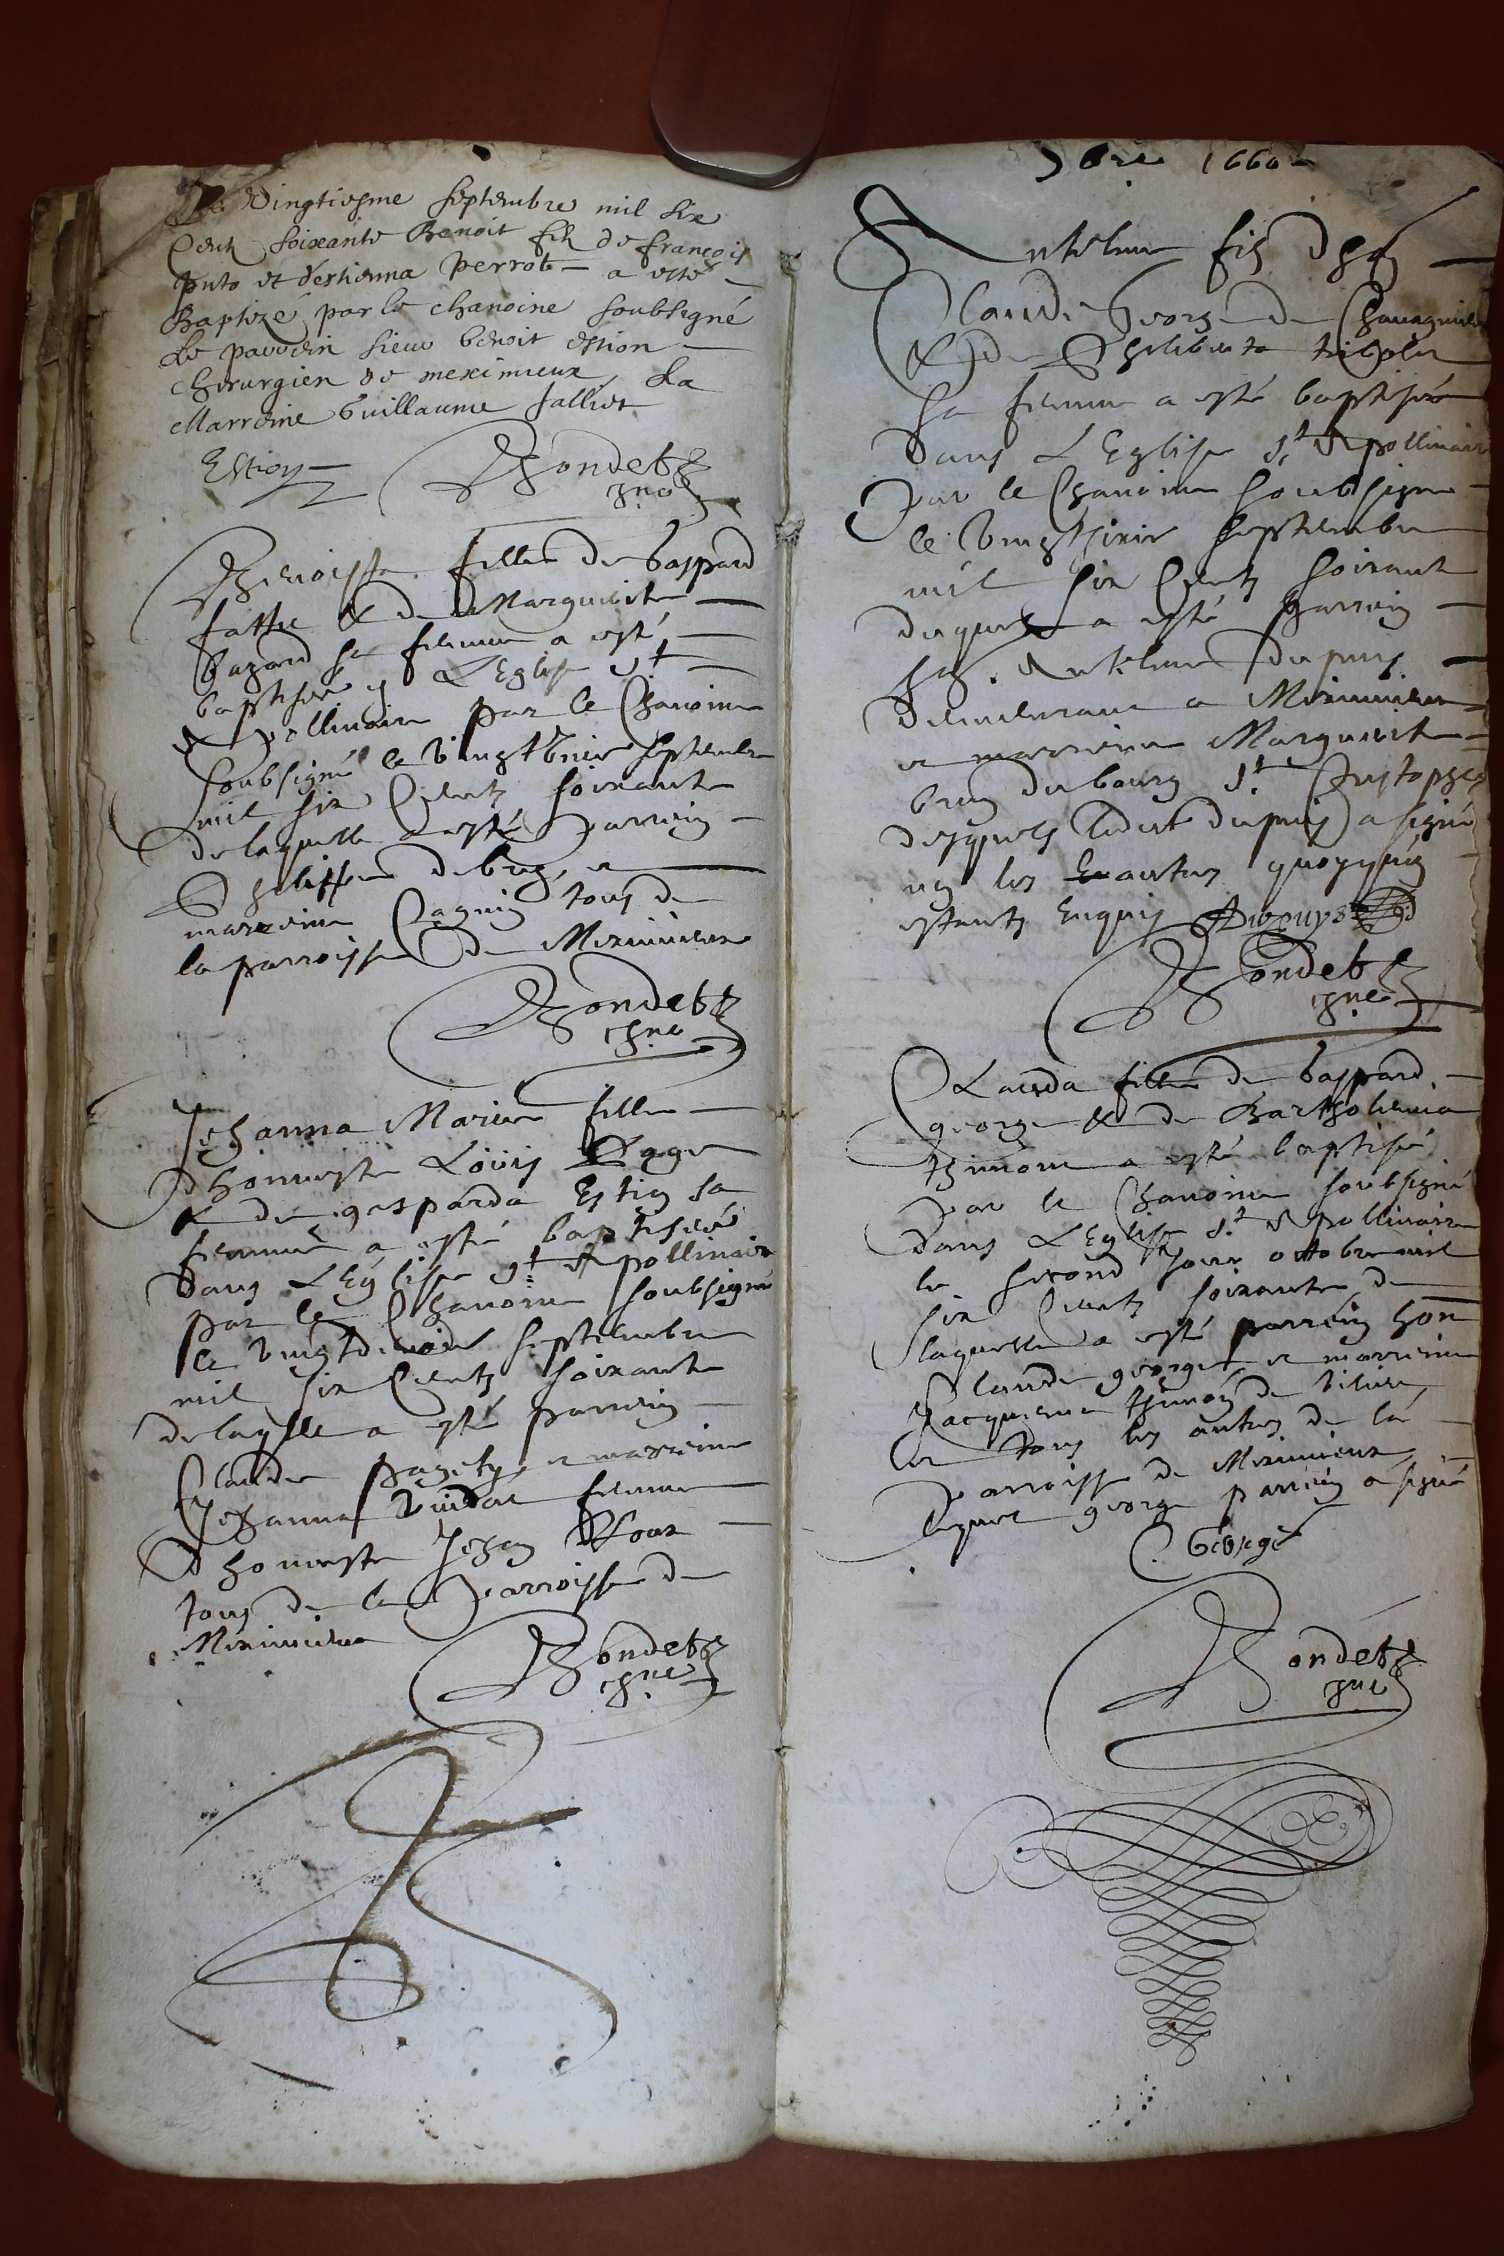 Le Vingtiesme septembre mil six
Cent soixante Benoit filz de françois
puto et d'estienna perrot a esté
Baptizé par le chanoine soubsigné
Le parrein sieur benoit estion
chirurgien de meximieux, La
Marreine Guillaume falliet
Estion Bondet
chne
Benoiste fille de Gaspard
fattu & de Marguerite
bazard sa femme a esté
baptisée en L'Eglise St
Appollinaire par le Chanoine
Soubsigné le vingt Vnie septembre
mil six Centz soixante
de laquelle a esté parrein
Philippe de et
marreine Cagnin tous de
la parroisse de Meximieux
Bondet
chne
Jehanna Marie fille
d'honneste Louis Page
& de gasparda Estion sa
femme a esté baptisée
dans L'Eglise St Appollinaire
par le Chanoine soubsigné
le vingtdeuxie septembre
mil six Centz soixante
de laqlle a esté parrein
Claude pagety et marreine
Jehanna Vuidat femme
d'honneste Jehan Roux
tous de la parroisse de
Meximieux
Bondet
chne
7bre 1660
Anthelme filz d'hon
Claude George de Chavagnieu
& de Philiberta
sa femme a esté baptisé
dans L'Eglise St Appollinaire
par le Chanoine soubsigné
le Vingtsixie septembre
mil six Centz soixante
duquel a esté parrein
hon. Anthelme dupuys
demeurant a Meximieux
et marreine Marguerite
brun du bourg St Cristophe
desquels ledict dupuis a signé
non les autres quoyque
estantz Enquis Dupuys
Bondet
chne
Clauda fille de Gaspard
george & de Bartholemia
thimon a esté baptisé
par le Chanoine soubsigné
dans L'Eglise St Appollinaire
le second jour octobre mil
six Centz soixante de
laquelle a esté parrein hon
Claude george, et marreine
Jacquema thimon de
et tous les autres de la
parroisse de Meximieux,
lequel george parrein a signé
C. George
Bondet
chne